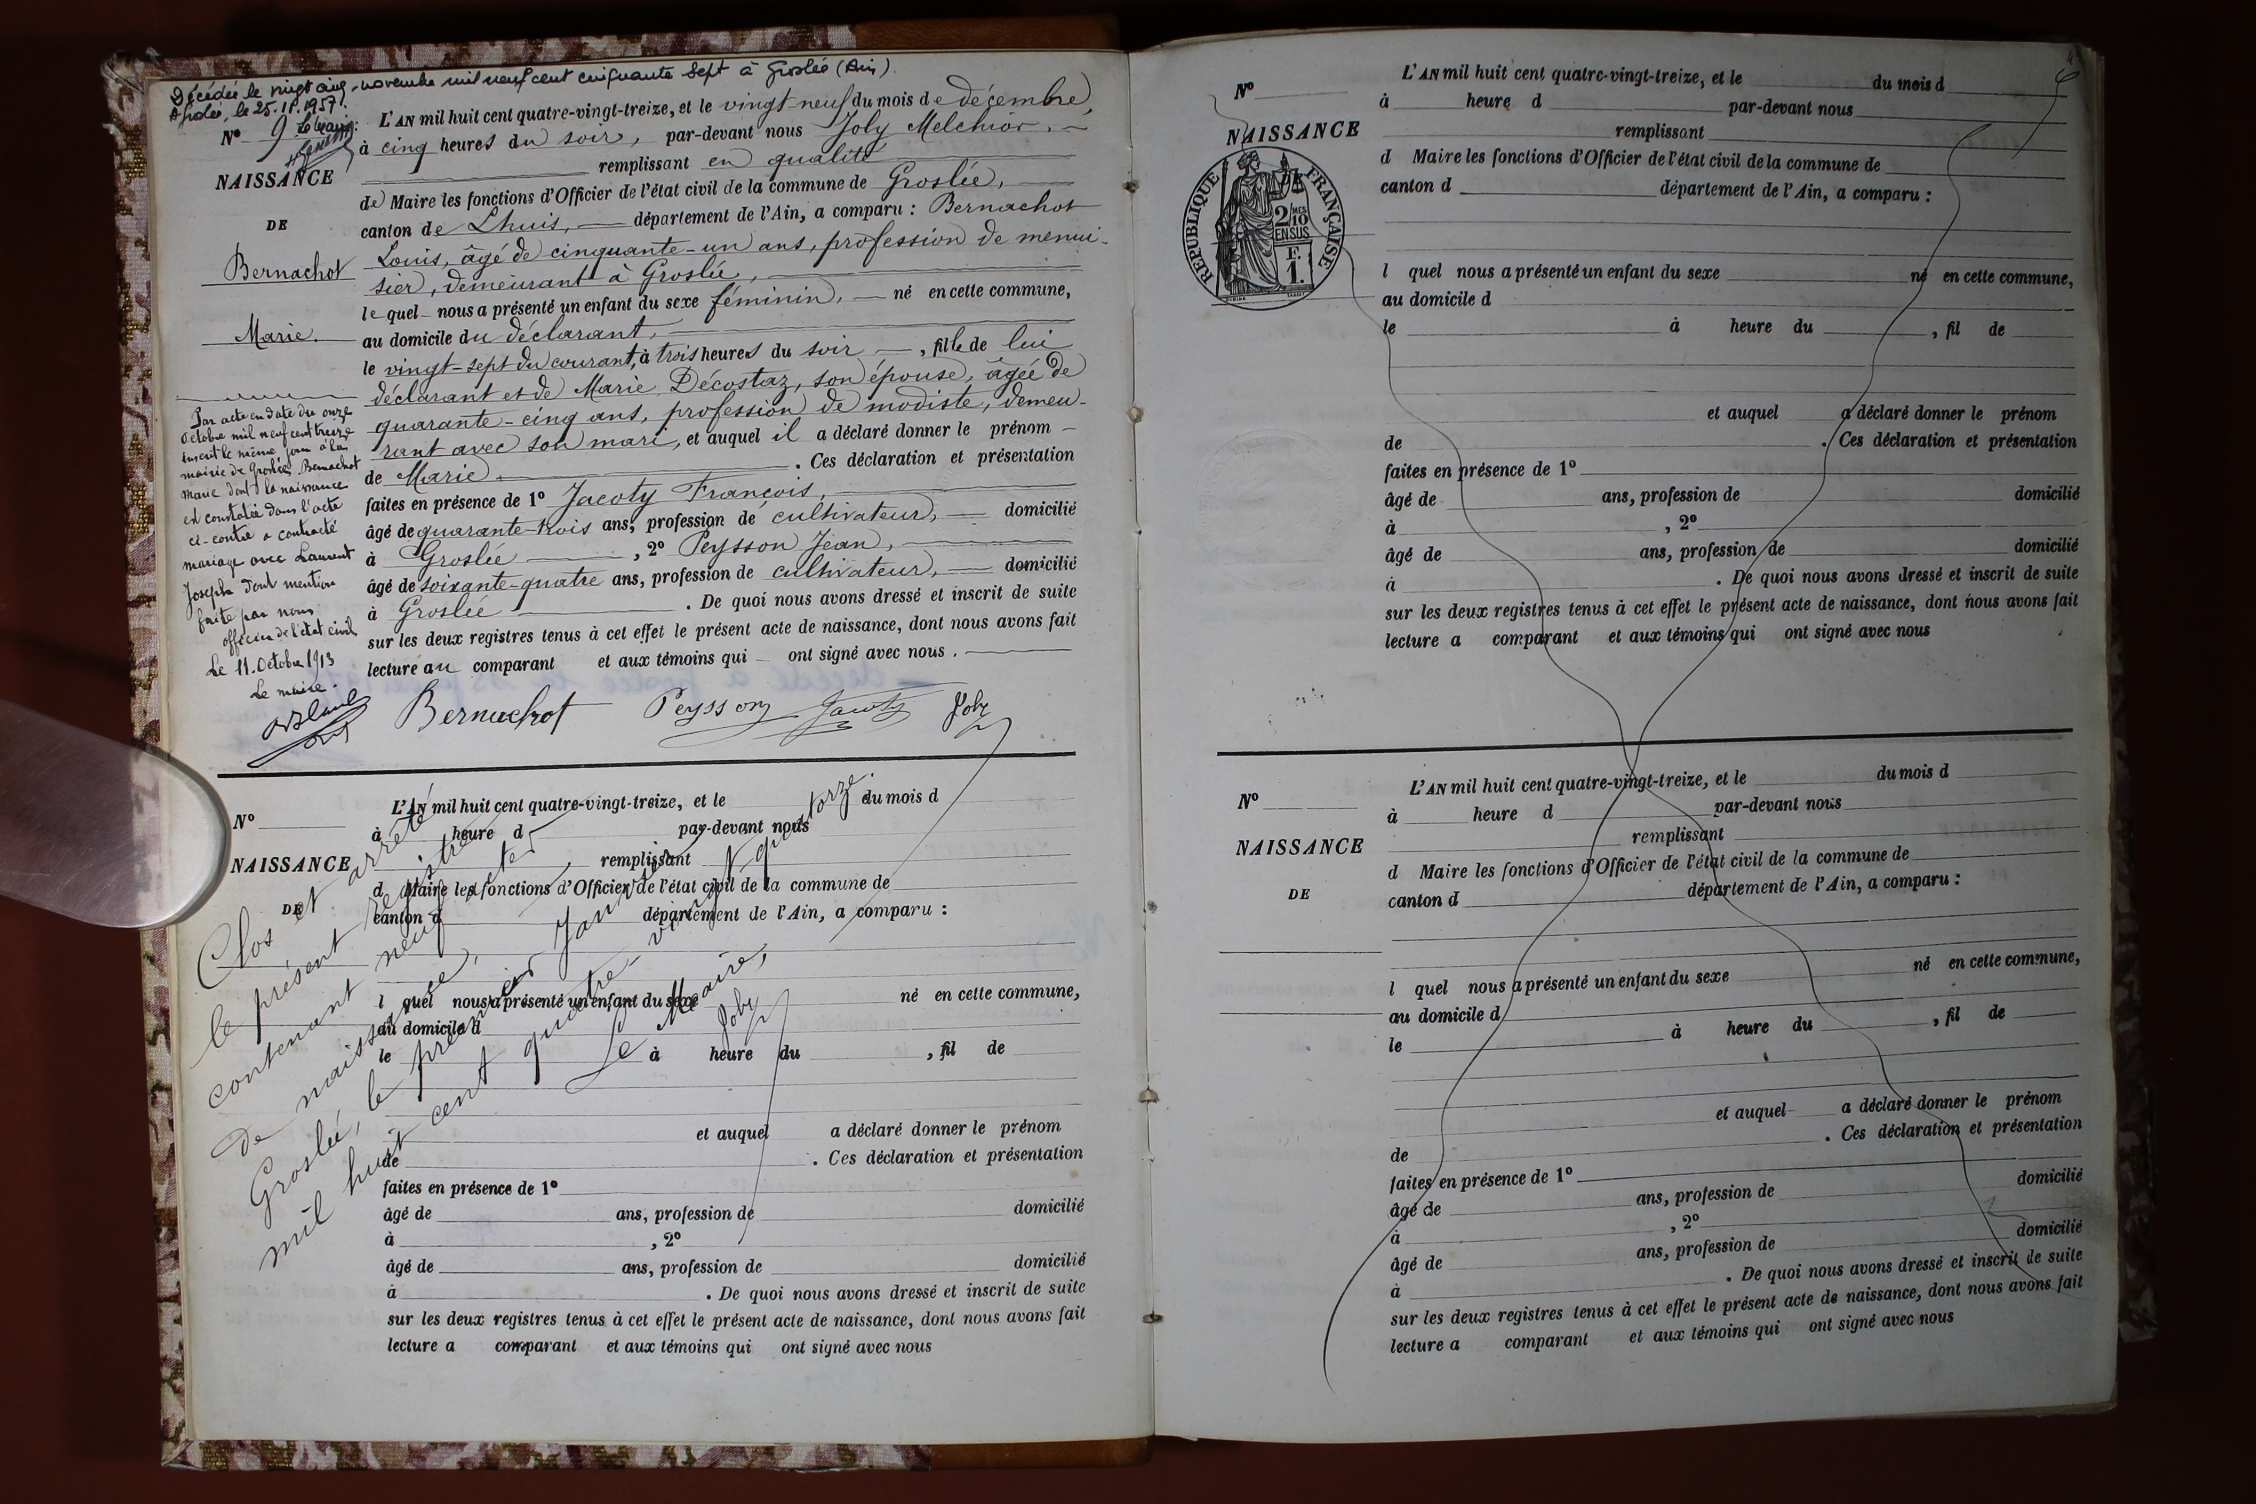 Décédée le vingt cinq novembre mil neuf cent cinquante sept à Groslée (Ain).
A Groslée, le 25.11.1957.
Le Maire:
N° 9
NAISSANCE
DE
Bernachot
Marie.
Par acte en date du onze
octobre mil neuf cent treize
inscrit le même jour à la
mairie de Groslée Bernachot
Marie dont la naissance
est constatée dans l'acte
ci-contre a contracté
mariage avec Laurent
Joseph dont mention
faite par nous
officier de l'état civil
Le 11 Octobre 1913
Le maire.
L'AN mil huit cent quatre-vingt-treize, et le vingt-neuf du mois de décembre,
à cinq heures du soir, par-devant nous Joly Melchior,
remplissant en qualité
de Maire les fonctions d'Officier de l'état civil de la commune de Groslée,
canton de Lhuis, département de l'Ain, a comparu : Bernachot
Louis, âgé de cinquante-un ans, profession de menui-
sier, demeurant à Groslée,
le quel nous a présenté un enfant du sexe féminin, né en cette commune,
au domicile du déclarant,
le vingt-sept du courant, à trois heures du soir, fille de lui
déclarant et de Marie Décostaz, son épouse, âgée de
quarante-cinq ans, profession de modiste, demeu-
rant avec son mari, et auquel il a déclaré donner le prénom
de Marie. Ces déclaration et présentation
faites en présence de 1° Jacoty François,
âgé de quarante-trois ans, profession de cultivateur, domicilié
à Groslée, 2° Peysson Jean,
âgé de soixante-quatre ans, profession de cultivateur, domicilié
à Groslée. De quoi nous avons dressé et inscrit de suite
sur les deux registres tenus à cet effet le présent acte de naissance, dont nous avons fait
lecture au comparant et aux témoins qui ont signé avec nous.
Bernachot Peysson Jacoty Joly
N°
NAISSANCE
DE
L'AN mil huit cent quatre-vingt-treize, et le du mois d
à heure d par-devant nous
remplissant
d Maire les fonctions d'Officier de l'état civil de la commune de
canton d département de l'Ain, a comparu :
l quel nous a présenté un enfant du sexe né en cette commune,
au domicile d
le à heure du , fil de
et auquel a déclaré donner le prénom
de . Ces déclaration et présentation
faites en présence de 1°
âgé de ans, profession de domicilié
à , 2°
âgé de ans, profession de domicilié
à . De quoi nous avons dressé et inscrit de suite
sur les deux registres tenus à cet effet le présent acte de naissance, dont nous avons fait
lecture a comparant et aux témoins qui ont signé avec nous
Clos et arrêté
le présent registre
contenant neuf actes
de naissance,
Groslée, le premier Janvier
mil huit cent quatre-vingt quatorze.
Le Maire,
Joly
N°
NAISSANCE
DE
RÉPUBLIQUE FRANÇAISE
2/10 MES
EN SUS
F.
1.
L'AN mil huit cent quatre-vingt-treize, et le du mois d
à heure d par-devant nous
remplissant
d Maire les fonctions d'Officier de l'état civil de la commune de
canton d département de l'Ain, a comparu :
l quel nous a présenté un enfant du sexe né en cette commune,
au domicile d
le à heure du , fil de
et auquel a déclaré donner le prénom
de . Ces déclaration et présentation
faites en présence de 1°
âgé de ans, profession de domicilié
à , 2°
âgé de ans, profession de domicilié
à . De quoi nous avons dressé et inscrit de suite
sur les deux registres tenus à cet effet le présent acte de naissance, dont nous avons fait
lecture a comparant et aux témoins qui ont signé avec nous
N°
NAISSANCE
DE
L'AN mil huit cent quatre-vingt-treize, et le du mois d
à heure d par-devant nous
remplissant
d Maire les fonctions d'Officier de l'état civil de la commune de
canton d département de l'Ain, a comparu :
l quel nous a présenté un enfant du sexe né en cette commune,
au domicile d
le à heure du , fil de
et auquel a déclaré donner le prénom
de . Ces déclaration et présentation
faites en présence de 1°
âgé de ans, profession de domicilié
à , 2°
âgé de ans, profession de domicilié
à . De quoi nous avons dressé et inscrit de suite
sur les deux registres tenus à cet effet le présent acte de naissance, dont nous avons fait
lecture a comparant et aux témoins qui ont signé avec nous